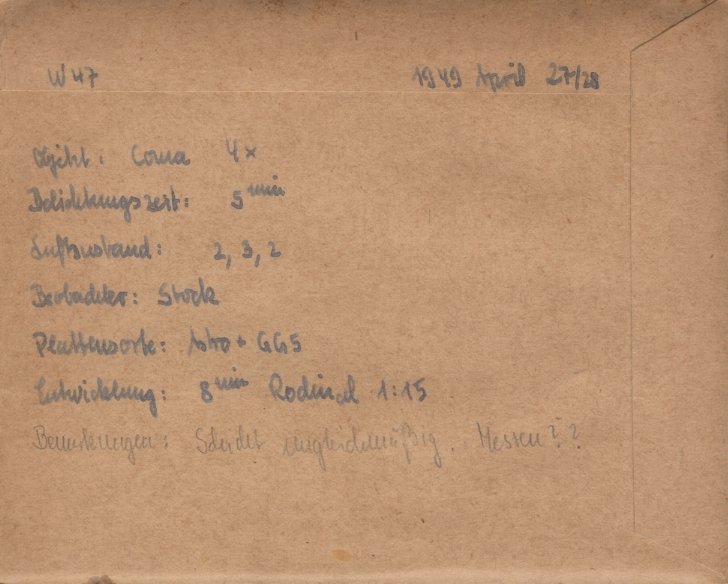 W 47 1949 April 27/28
Objekt: Coma 4x
Belichtungszeit: 5 min
Luftzustand: 2, 3, 2
Beobachter: Stock
Plattensorte: Astro + GG5
Entwicklung: 8 min Rodinal 1:15
Bemerkungen: Schicht ungleichmäßig. Messen??